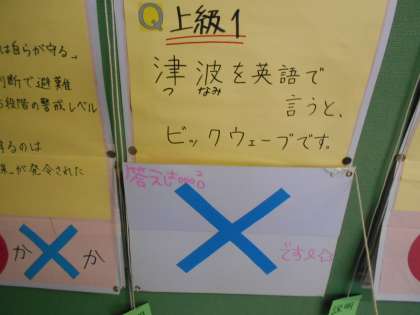 Q 上級1
津波を英語で
つ なみ
言うと、
ビックウェーブです。
答えは
です
は自らが守る、
判断で避難
段階の警戒レベル
るのは
が発令された
か